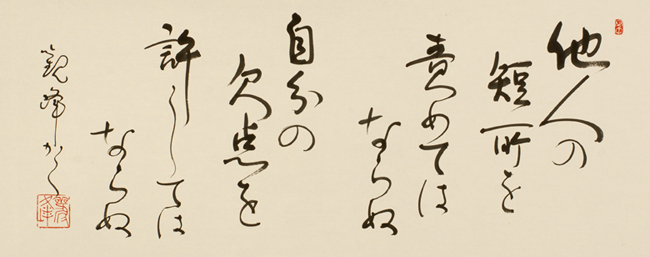 他人の
短所を
責めては
ならぬ
自分の
欠点を
許しては
ならぬ
観峰かく